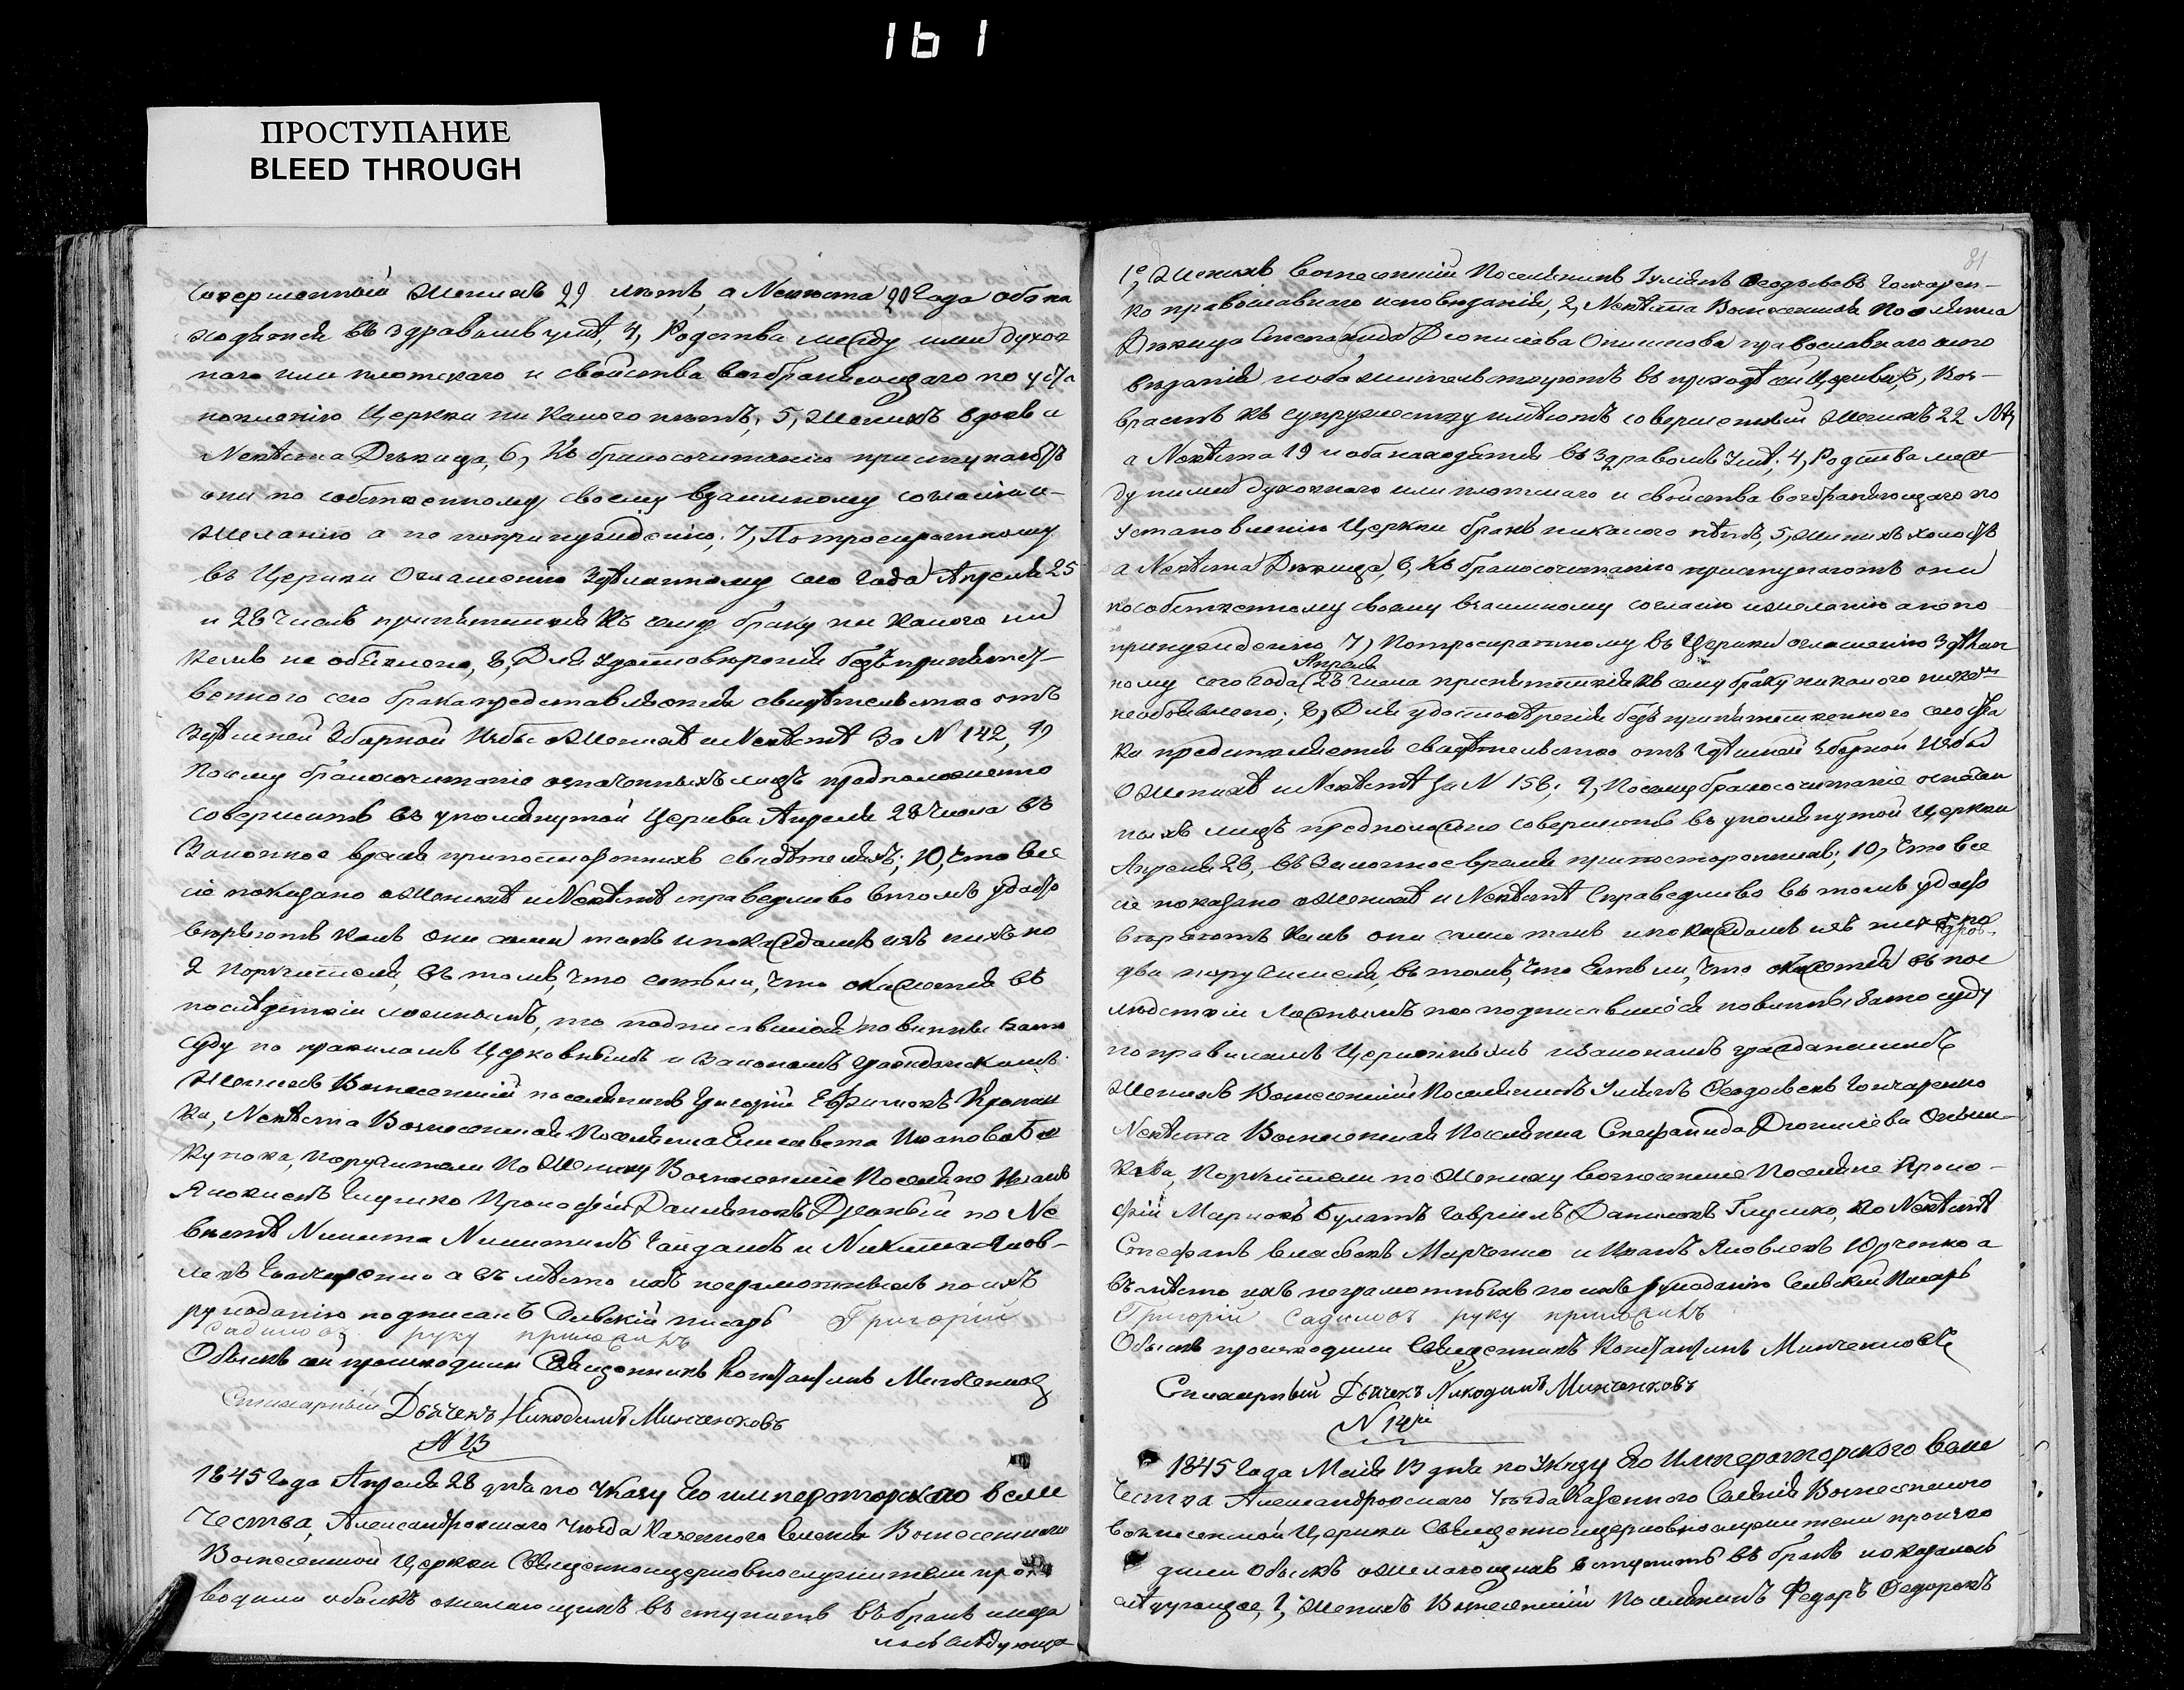 161
ПРОСТУПАНИЕ
BLEED THROUGH
совершенный Женихъ 29 лѣтъ, а Невѣста 20 Года оба на
ходятся въ здравомъ умѣ, 4, Родства между ими духов
наго или плотскаго и свойства возбраняющаго по уста
новленію Церкви ни какого нѣтъ; 5, Женихъ вдовъ а
Невѣста Дѣвица, 6, Къ бракосочитанію приступаютъ
они по собственному своему взаимному согласію и
желанію а не попринуждению; 7, По троекратному
въ Церкви Оглашенію Здѣланному сего Года Апреля 25
и 28 Числъ припятствия Къ сему браку ни какого ни
кемъ не обявлено, 8, Для Удостоверения безъ припятст-
венного сего брака представляется свидѣтельство отъ
Здѣшней Зборной Избы о Женихѣ и Невѣстѣ За N 142, 9,
Посему бракосочитаніе означенныхъ лицъ предположенно
совершить въ упомянутой Церкви Апреля 28 числа въ
Законное время припостороннихъ свидѣтеляхъ; 10, что все
сіе показано о Женихѣ и Невѣстѣ справедливо втомъ удосто
вѣряютъ какъ они сами такъ и покаждомъ изъ нихъ по
2 поручителя, въ томъ, что естьли, что окажется въ
послѣдствіи ложнымъ, то подписавшіися повинны за то
суду по правиламъ Церковнымъ и Законамъ гражданскимъ
Женихъ Вознесенскій поселянинъ Григорій Ефимовъ
ка, Невѣста Вознесенская Поселянка Елисавета Иванова
поручители По Жениху Вознесенскіе Поселяне Иванъ
Яковлевъ Глушко Прокофій Даниловъ по Не
вѣстѣ Никита Никитинъ Гайдамъ и Никита Яков-
левъ Гончаренко а въ мѣсто ихъ неграмотныхъ по ихъ
рукоданію подписалъ Сельскій писарь Григорій
Садимовъ руку приложилъ
Обыскъ сей произходили Священникъ Константинъ Минченков
Стихарный Дьячекъ Никодимъ Минченковъ
N 13
1845 Года Апреля 28 дня по Указу Его императорского вели
Чества, Александровскаго Уезда Казенного Селения Вознесенского
Вознесенской Церкви Священноцерковнослужители про
водили обыскъ ожелающихъ вступить въ бракъ иока
лось следующе
81
1е, Женихъ вознесенскій Поселянинъ Ульянъ Феодосьевъ Гончарен-
ко православнаго исповеданія, 2, Невѣста Вознесенская Поселянка
Дѣвица Степанида Дионисіева православнаго испо
веданія иоба жительствуютъ въ приходѣ сей Церкви, 3, Воз-
врастъ къ супружеству имѣютъ совершенный Женихъ 22 лѣт
а Невѣста 19 иоба находятся въ Здравомъ умѣ; 4, Родства меж
ду ними духовного или плотскаго и свойства возбраняющаго по
установленію Церкви бракъ никакого нѣтъ, 5, Женихъ холостъ
а Невѣста Дѣвица, 6, Къ бракосочитанію приступаютъ они
пособственному своему взаимному согласію ижеланію анепо
принуждению 7, потроекратному въ Церкви оглашению Здѣлан
Апреля
ному сего года 28 числа приспятствия къ сему браку никакого никем
необявлено; 8, Для удостовѣрения безъ припятственного сего бра
ка представляется свидѣтельство отъ здѣшней Зборной Избы
О Женихѣ и Невѣстѣ за N 158; 9, Посему бракосочитаніе означен
ныхъ лицъ предположено совершить въ упомянутой Церкви
Апреля 28, въ законное время припостороннихъ; 10, что все
сіе показано оженихѣ и Невѣстѣ Справедливо въ томъ удосто
вѣряютъ какъ они сами такъ ипокаждомъ изъ нихъ по
два поручителя, въ томъ, что Естьли, что окажется въ пос
лѣдствіи Ложнымъ то подписавшіися повинны зато суду
поправиламъ Церковнымъ изаконамъ гражданскимъ
Женихъ Вознесенскій Поселянинъ Ульянъ Феодосьевъ Гончаренко
Невѣста Вознесенская Поселянка Стефанида Дионисіева
Поручители по Жениху вознесенские Поселяне Проко-
фій Марковъ Булатъ Гавріилъ Даниловъ Глушко, по Невѣстѣ
Стефанъ Власьевъ Марченко и Иванъ Яковлевъ Юрченко а
въмѣсто ихъ неграмотныхъ по ихъ рукоданію Сельскій Писарь
Григорій Садимовъ руку приложилъ
Обыскъ произходили Священникъ Константинъ Минченковъ
Стихарный Дьячекъ Никодимъ Минченковъ
N 14й
1845 Года Мая 13 дня по Указу Его Императорского Вели
чества Александровскаго Уезда Казенного Селения Вознесенского
Вознесенской Церкви Священноцерковнослужители произхо
дили Обыскъ ожелающихъ вступить въ бракъ иоказалось
слѣдующее, 1, Женихъ Вознесенскій Поселянинъ Федоръ Федоровъ